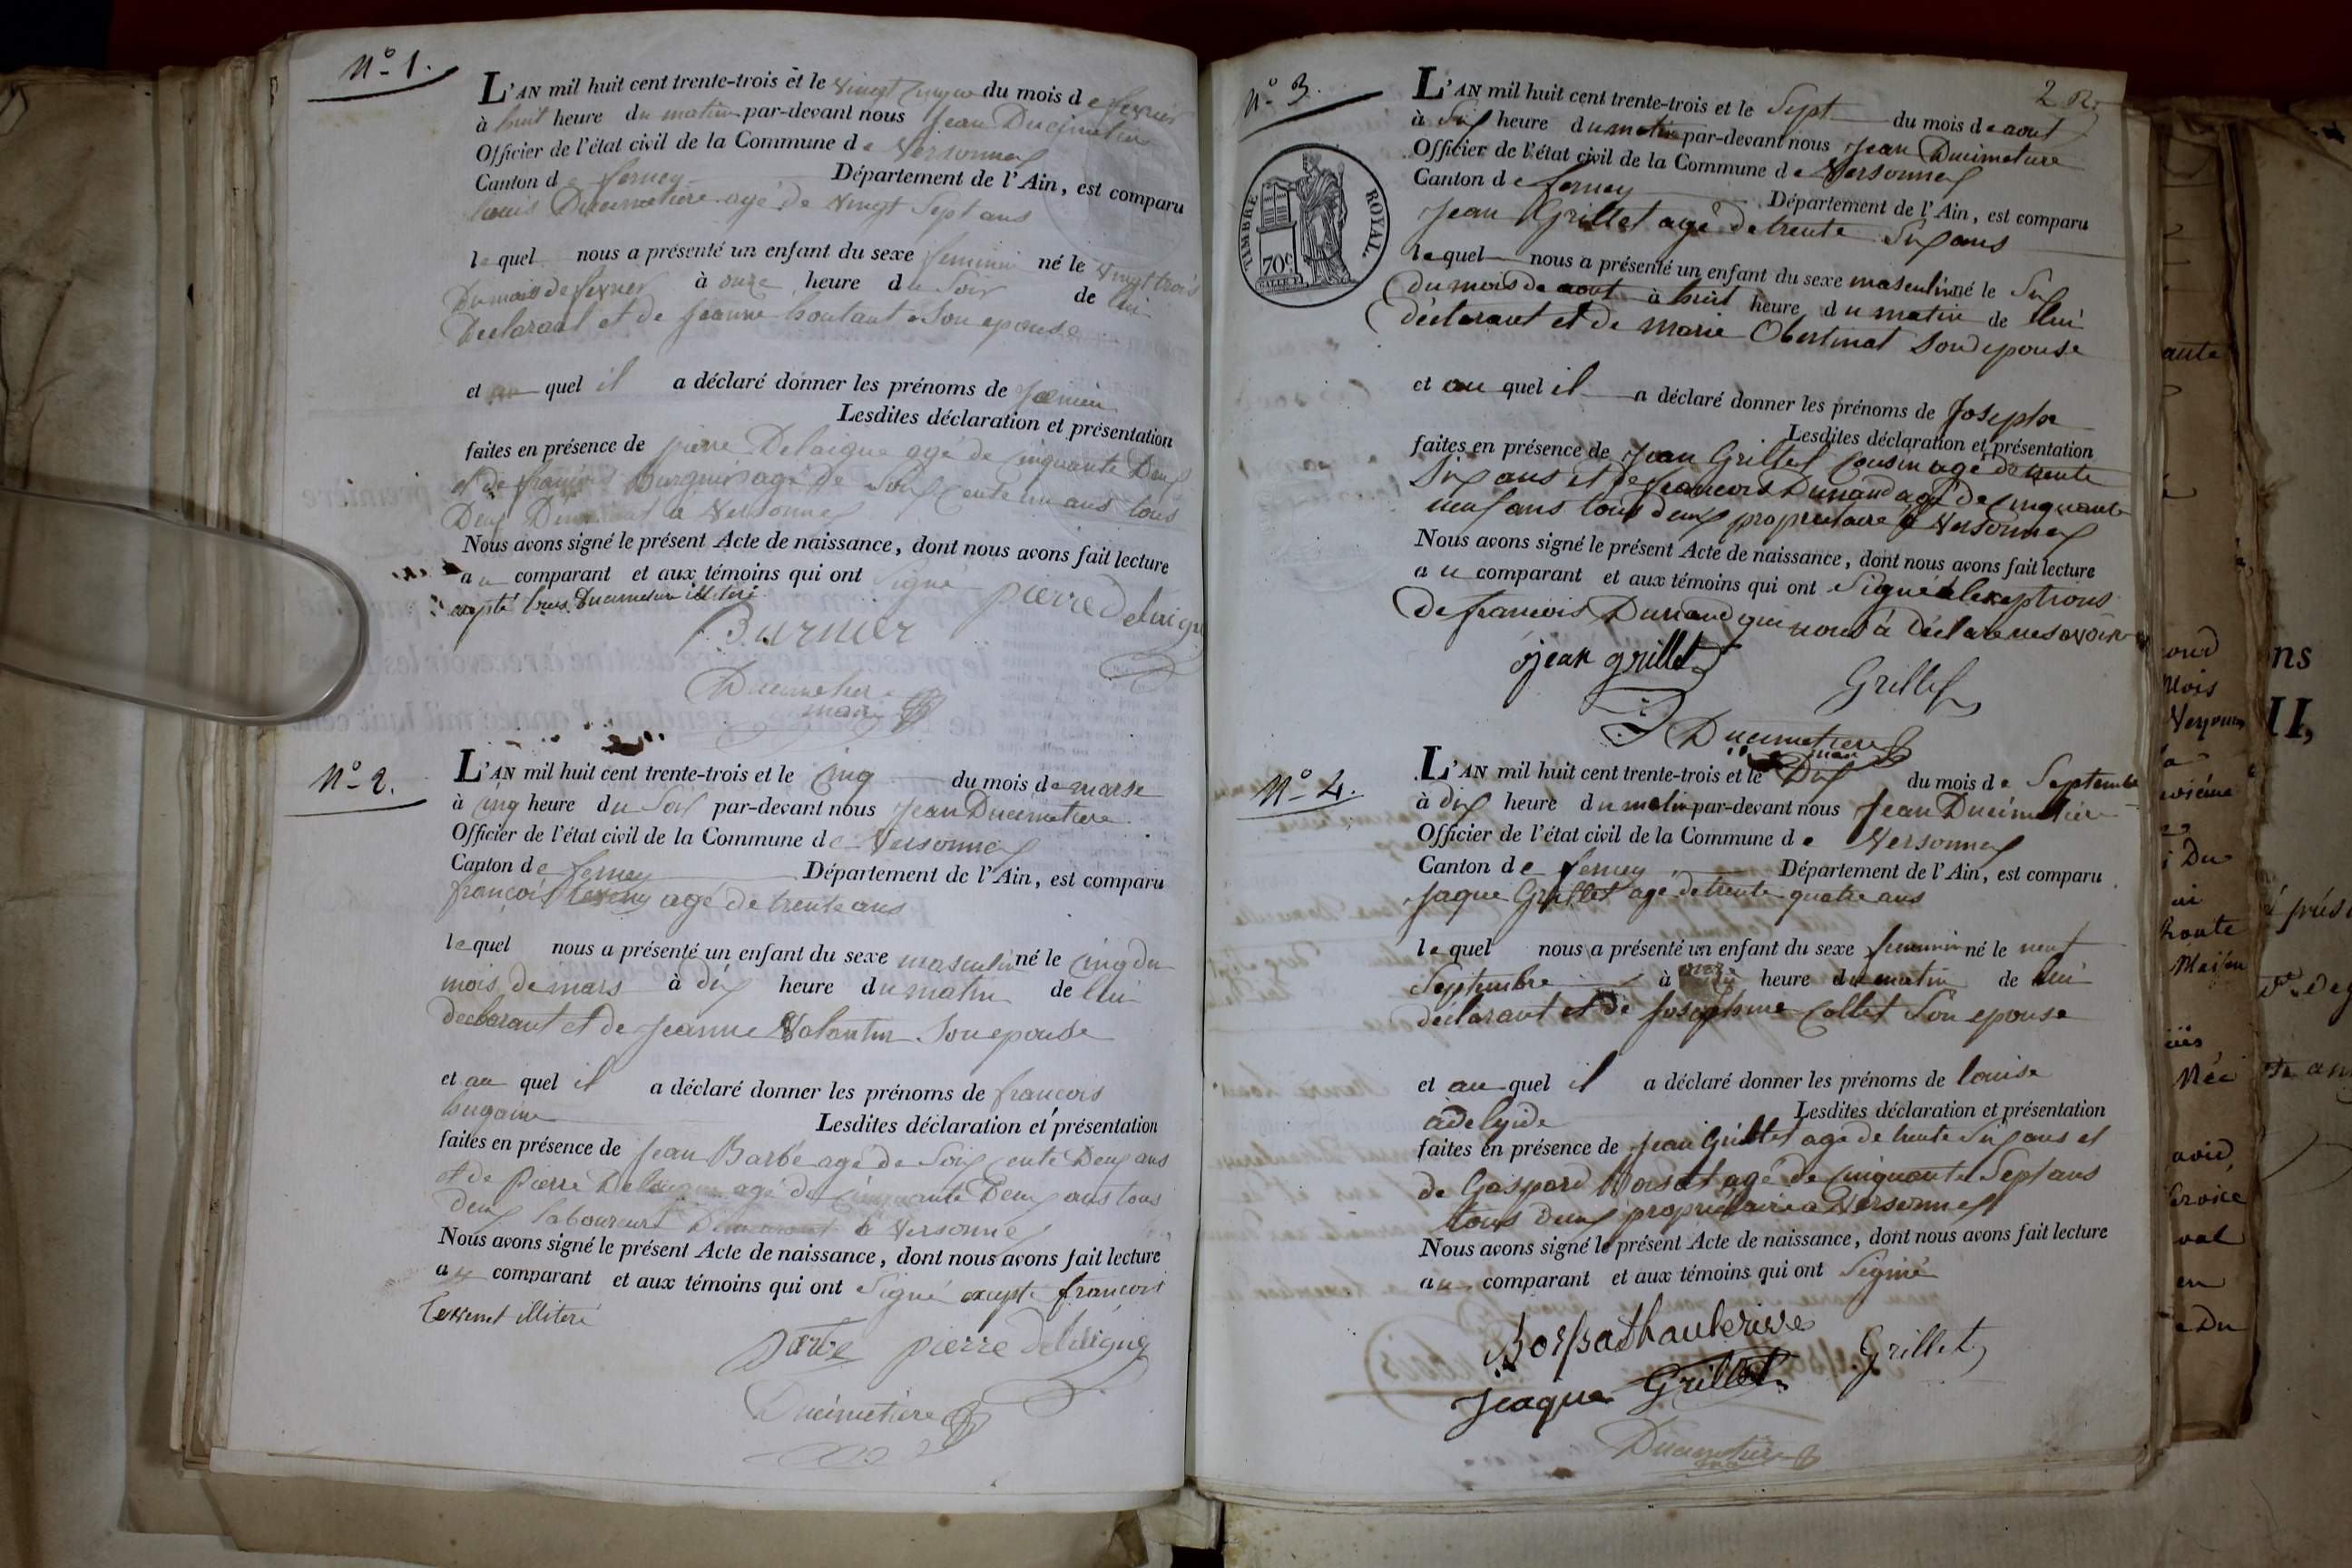 N° 1.
L'AN mil huit cent trente-trois et le vingt cinq du mois de fevrier
à huit heure du matin par-devant nous Jean Ducimetiere
Officier de l'état civil de la Commune de Versonnex
Canton de ferney Département de l'Ain, est comparu
louis Ducimetiere agé de vingt Sept ans
lequel nous a présenté un enfant du sexe feminin né le vingt trois
Du mois de fevrier à onze heure du Soir de lui
Declarant et de Jeanne Son epouse
et au quel il a déclaré donner les prénoms de
Lesdites déclaration et présentation
faites en présence de pierre Delaigue agé de cinquante Deux
et de françois agé de Soix cente un ans tous
Deux a Versonnex
Nous avons signé le présent Acte de naissance, dont nous avons fait lecture
au comparant et aux témoins qui ont Signé
excepté louis Ducimetiere illiteré
pierre Delaigue
Burnier
Ducimetiere
maire
N° 2.
L'AN mil huit cent trente-trois et le cinq du mois de marse
à cinq heure du Soir par-devant nous Jean Ducimetiere
Officier de l'état civil de la Commune de Versonnex
Canton de ferney Département de l'Ain, est comparu
françois agé de trente ans
lequel nous a présenté un enfant du sexe masculin né le cinq du
mois de mars à dix heure du matin de lui
declarant et de Jeanne Valantin Son epouse
et au quel il a déclaré donner les prénoms de francois
Lesdites déclaration et présentation
faites en présence de Jean Barbé agé de Soix cente Deux ans
et de Pierre Delaigue agé de cinquante Deux ans tous
deux laboureurs a Versonnex
Nous avons signé le présent Acte de naissance, dont nous avons fait lecture
au comparant et aux témoins qui ont Signé excepté francois
illiteré
Barbe pierre delaigue
Ducimetiere
2
N° 3.
L'AN mil huit cent trente-trois et le Sept du mois de aout
à Six heure du matin par-devant nous Jean Ducimetiere
Officier de l'état civil de la Commune de Versonnex
Canton de ferney Département de l'Ain, est comparu
Jean Grillet agé de trente Six ans
TIMBRE ROYAL
70c
lequel nous a présenté un enfant du sexe masculin né le Six
du mois de aout à huit heure du matin de lui
déclarant et de marie Obertinat Son epouse
et au quel il a déclaré donner les prénoms de Joseph
Lesdites déclaration et présentation
faites en présence de Jean Grillet cousin agé de trente
Six ans et de francois Dunand agé de cinquante
neuf ans tous deux proprietaire a Versonnex
Nous avons signé le présent Acte de naissance, dont nous avons fait lecture
au comparant et aux témoins qui ont Signé a lexeptions
de francois Dunand qui nous a déclaré ne savoir
jean grillet
Grillet
Ducimetiere
maire
N° 4.
L'AN mil huit cent trente-trois et le Dix du mois de Septembre
à dix heure du matin par-devant nous Jean Ducimetiere
Officier de l'état civil de la Commune de Versonnex
Canton de ferney Département de l'Ain, est comparu
Jaque Grillet agé de trente quatre ans
lequel nous a présenté un enfant du sexe feminin né le neuf
Septembre à onze heure du matin de lui
déclarant et de Josephine Collet Son epouse
et au quel il a déclaré donner les prénoms de louise
adelayide
Lesdites déclaration et présentation
faites en présence de Jean Grillet agé de trente Six ans et
de Gaspard Borsat agé de cinquante Sept ans
tous deux proprietaire a Versonnex
Nous avons signé le présent Acte de naissance, dont nous avons fait lecture
au comparant et aux témoins qui ont Signé
Borssathauterive
Grillet
Jeaque Grillet
Ducimetiere